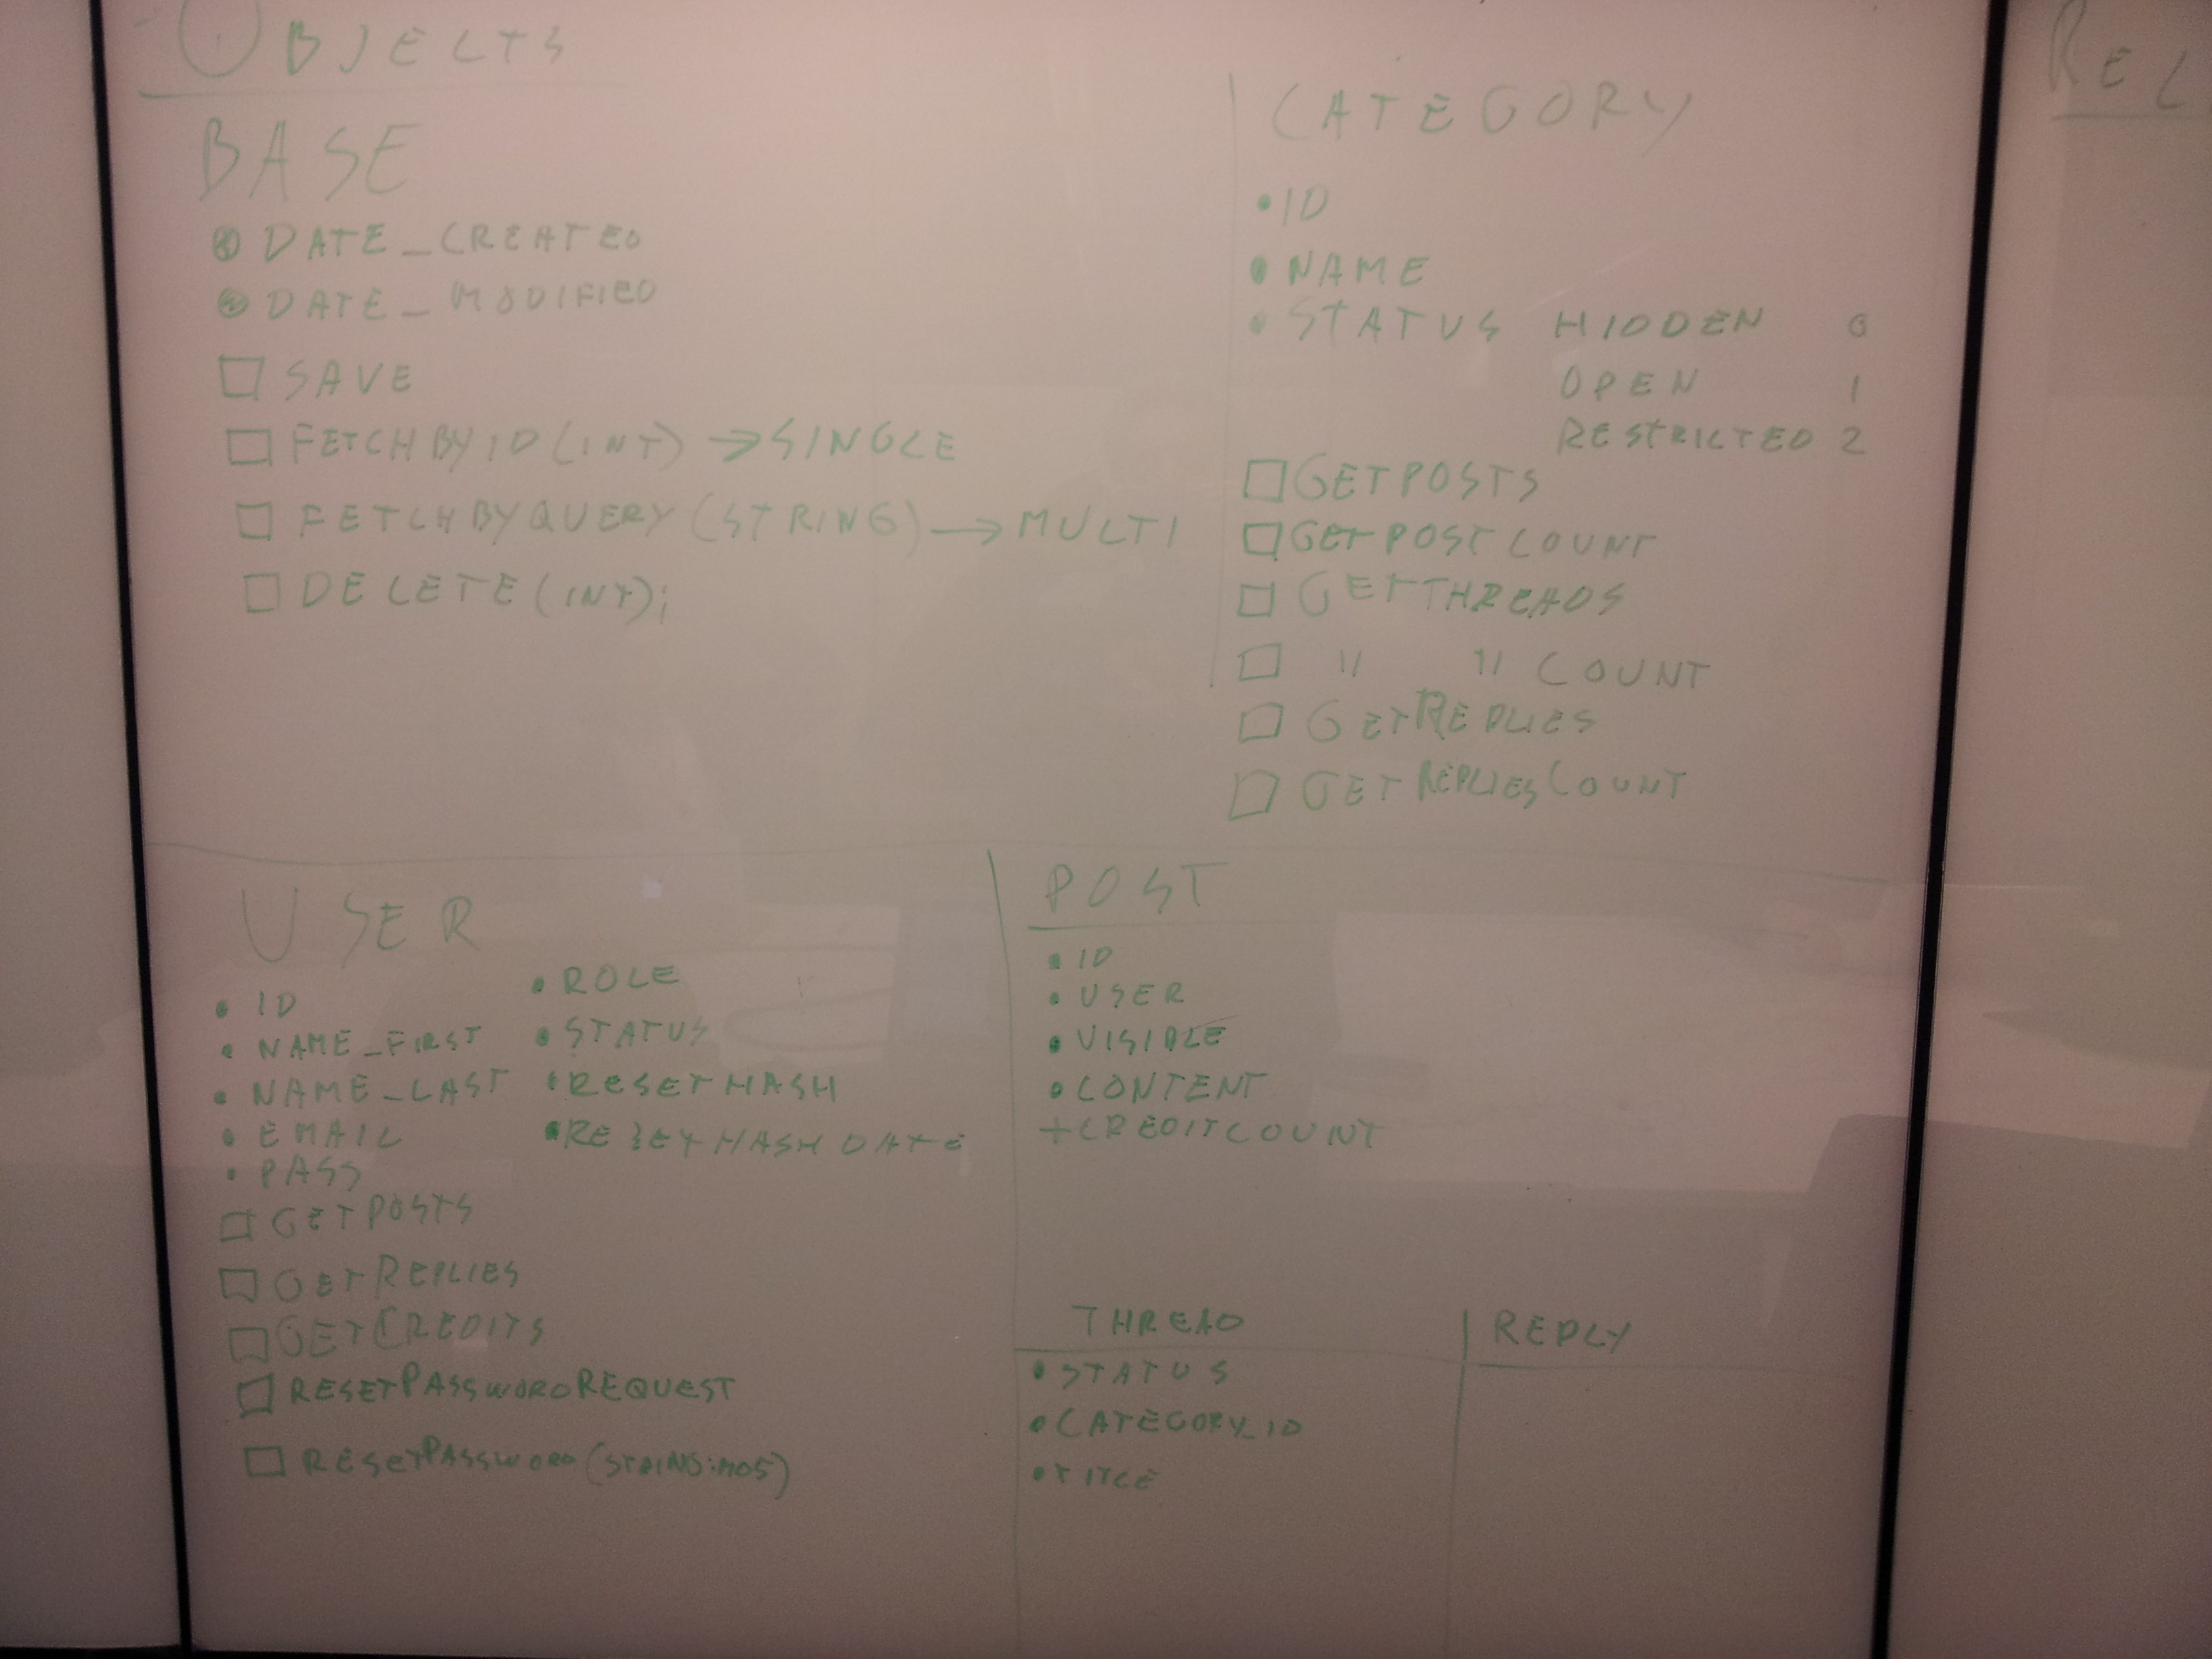 OBJECTS
BASE
DATE_CREATED
DATE_MODIFIED
SAVE
FETCHBYID(INT) → SINGLE
FETCHBYQUERY(STRING) → MULTI
DELETE(INT);
CATEGORY
• ID
• NAME
• STATUS HIDDEN 0
OPEN 1
RESTRICTED 2
GETPOSTS
GETPOSTCOUNT
GETTHREADS
" " COUNT
GETREPLIES
GETREPLIESCOUNT
USER
• ID
• NAME_FIRST
• NAME_LAST
• EMAIL
• PASS
• ROLE
• STATUS
• RESETHASH
• RESETHASHDATE
GETPOSTS
GETREPLIES
GETCREDITS
RESETPASSWORDREQUEST
RESETPASSWORD(STRING:MD5)
POST
• ID
• USER
• VISIBLE
• CONTENT
+CREDITCOUNT
THREAD
• STATUS
• CATEGORY_ID
• TITLE
REPLY
REL